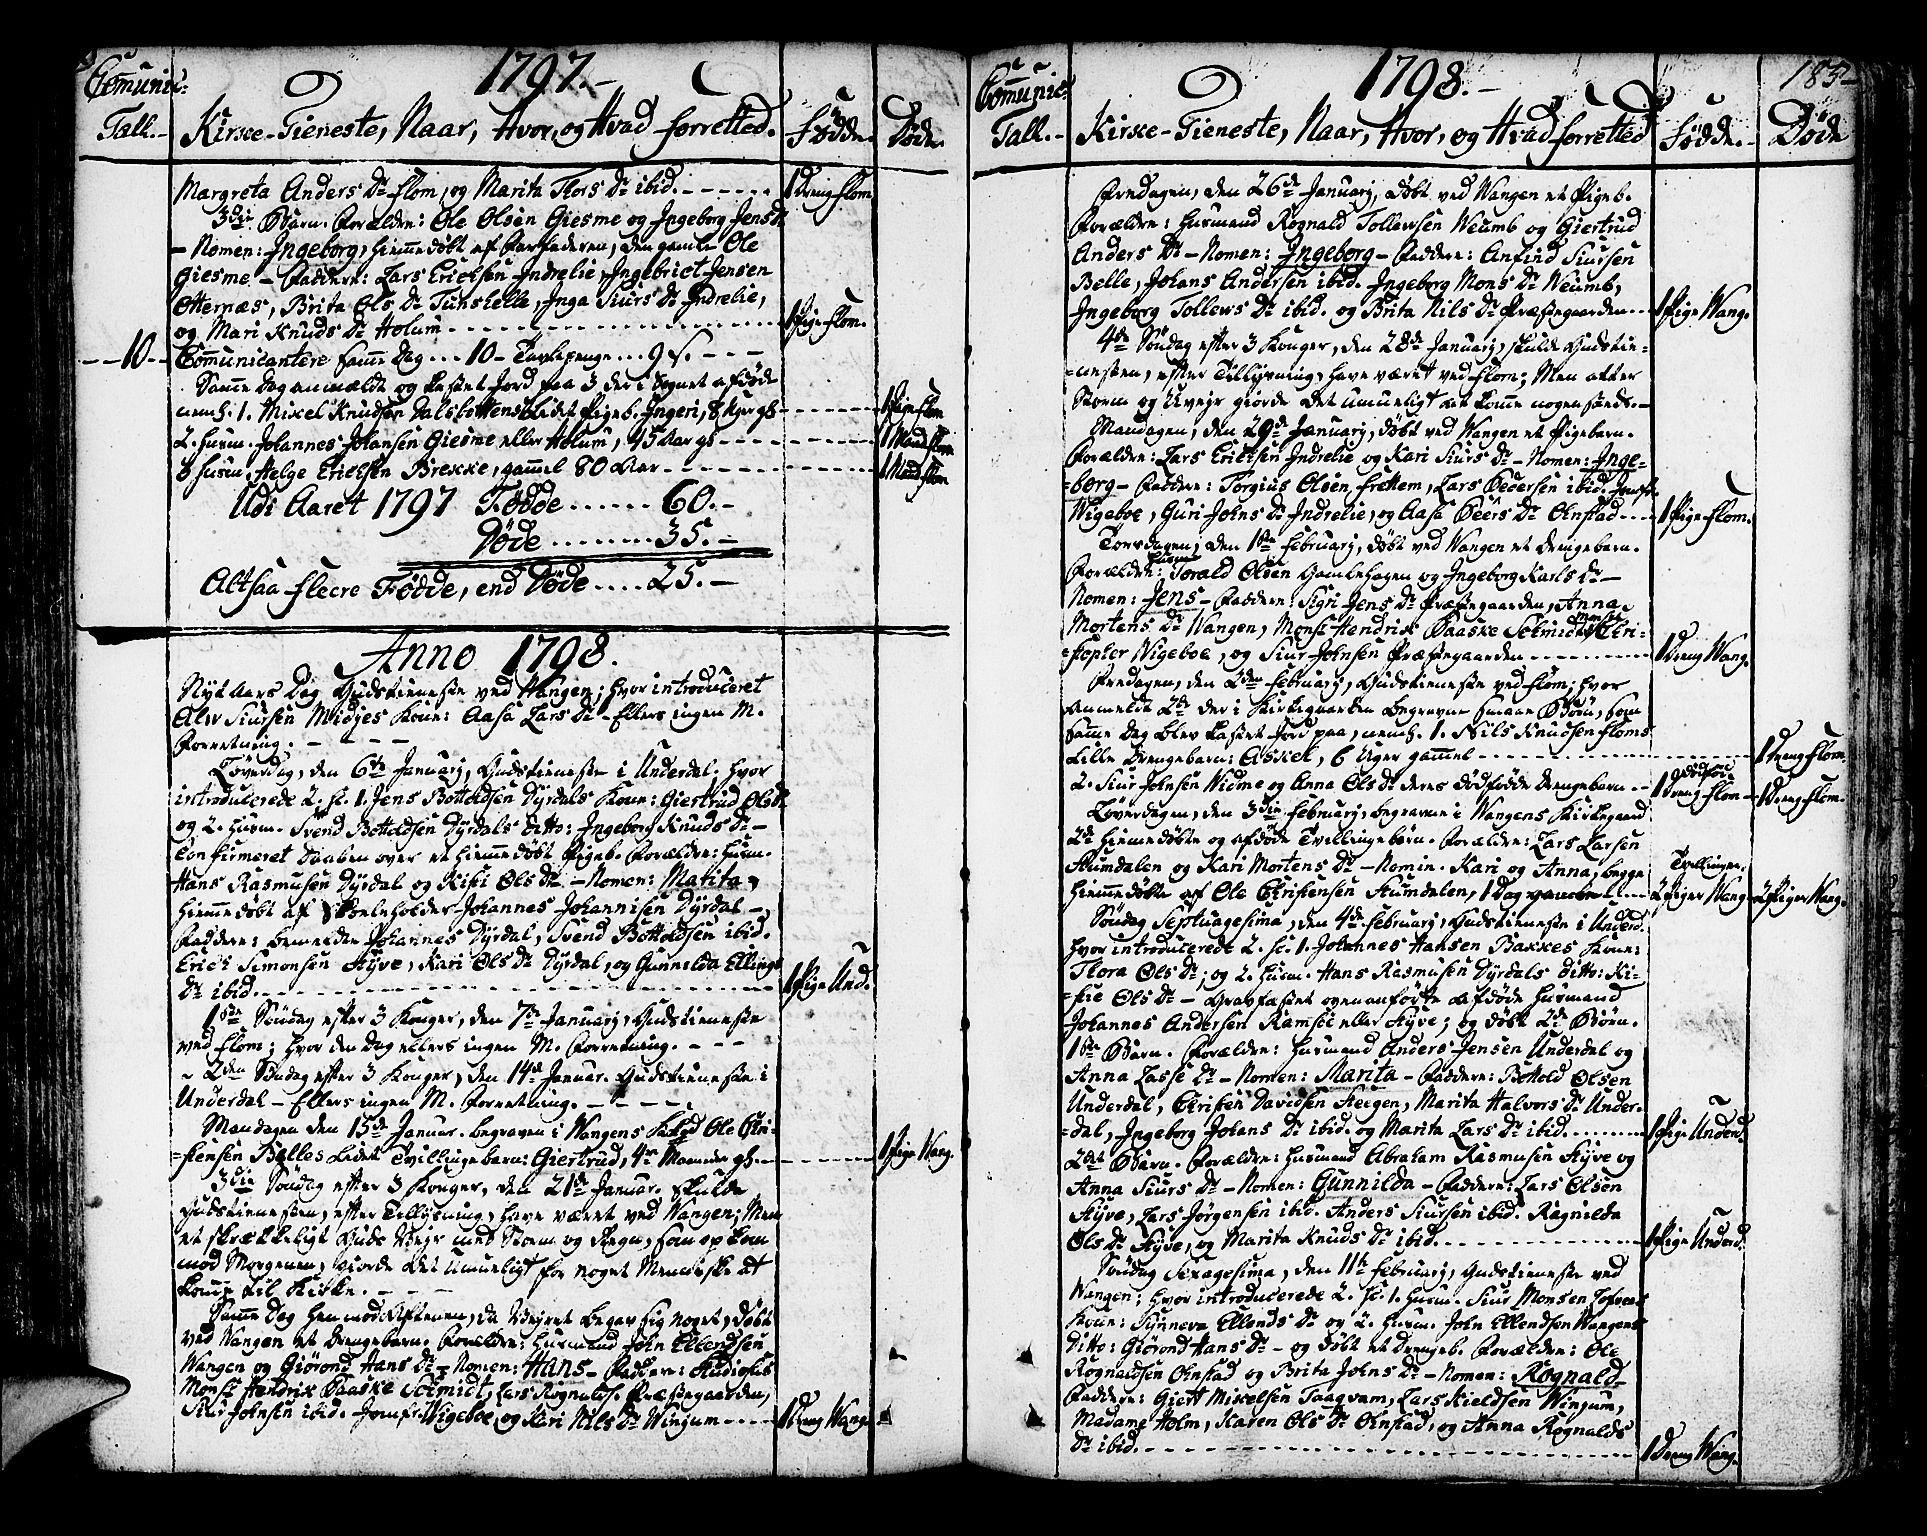 1797.
Comunic:
Tall.
Kirke-Tieneste, Naar, Hvor, og Hvad forretted.
Fødde.
Døde.
Margreta Anders Dr Flom, og Marita Thors Dr ibid. 1 Dreng Flom
3die Barn. Forældre: Ole Olsen Giesme og Ingeborg Jens Dr
Nomen: Ingeborg, hiemmedøbt af Farfaderen, den gamle Ole
Giesme - Faddere: Lars Erichsen Indrelie, Ingebrict Jensen
Otternæs, Brita Ols Dr Tunshelle, Inga Siurs Dr Indrelie,
og Mari Knuds Dr Holum 1 Pige Flom.
10 Comunicantere samme Dag ... 10 - Tavlepenge ... 9 s.
Samme Dag anmeldt og kastet Jord paa 3 de i Sognet afdøde
nemh. 1. Mikel Knudsen Dalsbottens lidet Pigeb. Ingeri, 8 Uger gl. 1 Pige Flom
2. Husm. Johannes Johansen Giesme eller Holum, 45 Aar gl. 1 Mand Flom
3 Husm. Helge Erichsen Brekke, gammel 80 Aar 1 Mand Flom
Udi Aaret 1797 Fødde ...... 60.
Døde ......... 35.
Altsaa fleere Fødde, end Døde .... 25.
Anno 1798.
Nyt Aars Dag Gudstieneste ved Wangen; hvor introduceret
Alv Siursen Midjes Kone: Aasa Lars Dr - Ellers ingen M.
Forretning.
Løverdag, den 6te Januarj, Gudstieneste i Underdal; hvor
introducerede 2. sc. 1. Jens Bottoldsen Dyrdals Kone: Giertrud Ols Dr
og 2. Husm. Svend Bottoldsen Dyrdals ditto: Ingeborg Knuds Dr -
Confirmeret Daaben over et hiemmedøbt Pigeb. Forældre: Husm.
Hans Rasmusen Dyrdal og Kisti Ols Dr - Nomen: Marita,
hiemmedøbt af Skoleholder Johannes Johannisen Dyrdal -
Faddere: bemeldte Johannes Dyrdal, Svend Bottoldsen ibid.
Erich Simonsen Styve, Kari Ols Dr Dyrdal, og Gunnilda Ellings
Dr ibid. 1 Pige Und.
1ste Søndag efter 3 Konger, den 7de Januarj, Gudstieneste
ved Flom; hvor den Dag ellers ingen M. Forretning.
2den Søndag efter 3 Konger, den 14de Januar. Gudstieneste i
Underdal - Ellers ingen M. Forretning.
Mandagen den 15de Januar. begraven i Wangens Kirkeg. Ole Chri-
stensen Belles lidet Tvillingebarn: Giertrud, 4re Maaneder gl. 1 Pige Wang.
3die Søndag efter 3 Konger, den 21de Januar. skulde
Gudstienesten, efter Tillysning, have været ved Wangen; Men
et skrækkeligt Guds Veyr med Storm og Regn, som opkom
mod Morgenen, giorde det umueligt for noget Menniske at
komme til Kirke.
Samme Dag hen mod Aftenen, da Veyret begav sig noget, døbt
ved Wangen et Drengebarn. Forældre: Husmand John Ellendsen
Wangen og Giørond Hans Dr - Nomen: Hans - Faddere: Studiosus
Monsr Hendrik Daaske Schmidt, Lars Rognaldse Præstegaarden,
Siur Johnsen ibid. Jomfr. Wigeboe, og Kari Nils Dr Wingum 1 Dreng Wang.
1798.
185
Comunic:
Tall.
Kirke-Tieneste, Naar, Hvor, og Hvad forretted
Fødde.
Døde
Fredagen, den 26de Januarj, døbt ved Wangen et Pigeb.
Forældre: Husmand Rognald Tollewsen Neumb og Giertrud
Anders Dr - Nomen: Ingeborg - Faddere: Anfind Siursen
Belle, Johans Andersen ibid. Ingeborg Mons Dr Neumb,
Ingeborg Tollews Dr ibid. og Brita Nils Dr Præstegaarden 1 Pige Wang.
4de Søndag efter 3 Konger, den 28de Januarj, skulde Gudstie-
nesten, efter Tillysning, have været ved Flom; Men atter
Storm og Uveyr giorde det umueligt at komme nogensteds.
Mandagen, den 29de Januarj, døbt ved Wangen et Pigebarn.
Forældre: Lars Erichsen Indrelie og Kari Siurs Dr - Nomen: Inge-
borg - Faddere: Torgius Olsen Frettem, Lars Pedersen ibid. Jomfr.
Wigeboe, Guri Johns Dr Indrelie, og Aasa Peers Dr Onstad 1 Pige Flom.
Torsdagen, den 1ste Februarj, døbt ved Wangen et Drengebarn.
Forældre: Husm. Torald Olsen Gamlehagen og Ingeborg Karls Dr -
Nomen: Jens - Faddere: Sigri Jens Dr Præstegaarden, Anna
Mortens Dr Wangen, Monsr Hendrik Daaske Schmidt, Monsr Chri-
stopher Wigeboe, og Siur Johnsen Præstegaarden 1 Dreng Wang.
Fredagen, den 2den Februarj, Gudstieneste ved Flom; hvor
anmeldt 2de der i Kirkegaarden begravne smaae Børn, som
samme Dag blev kastet Jord paa, nemh. 1. Nils Knudsen Floms
lille Drengebarn: Askel, 6 Uger gammel 1 Dreng Flom.
2. Siur Johnsen Widme og Anna Ols Dr deres dødfødde Drengebarn 1 dødfød Dreng Flom 1 Dreng Flom.
Løverdagen, den 3die Februarj, begravne i Wangens Kirkegaard
2de hiemmedøbte og afdøde Tvillingebørn. Forældre: Lars Larsen
Stundalen og Kari Mortens Dr - Nomin. Kari og Anna, begge
hiemmedøbte af Ole Christensen Stundalen, 1 Dag gamle Tvillinger. 2 Piger Wang. 2 Piger Wang.
Søndag Septuagesima, den 4de Februarj, Gudstieneste i Underd.
hvor introducerede 2. sc. 1. Johannes Hansen Bakkes Kone:
Thora Ols Dr; og 2. Husm. Hans Rasmusen Dyrdals ditto: Ki-
stie Ols Dr - Gravfæstet ovenanførte afdøde Husmand
Johannes Andersen Ramsøe eller Styve; og døbt 2de Børn.
1ste Barn. Forældre: Husmand Anders Jensen Underdal og
Anna Lasse Dr - Nomen: Marita - Faddere: Bottold Olsen
Underdal, Christen Davidsen Steegen, Marita Halvors Dr Under-
dal, Ingeborg Johans Dr ibid. og Marita Lars Dr ibid. 1 Pige Underd.
2det Barn. Forældre: Husmand Abraham Rasmusen Styve og
Anna Siurs Dr - Nomen: Gunnilda - Faddere: Lars Olsen
Styve, Lars Jørgensen ibid. Anders Siursen ibid. Ragnilda
Ols Dr Styve, og Marita Knuds Dr ibid. 1 Pige Underd.
Søndag Sexagesima, den 11te Februarj, Gudstieneste ved
Wangen; hvor introducerede 2. sc. 1. Husm. Siur Monsen
Kone: Synneva Ellends Dr og 2. Husm. John Ellendsen Wangens
Ditto: Giørond Hans Dr - og døbt et Drengeb. Forældre: Ole
Rognaldsen Onstad og Brita Johns Dr - Nomen: Rognald
Faddere: Giert Mikelsen Taagvam, Lars Kieldsen Wingum,
Madame Holm, Karen Ols Dr Onstad, og Anna Rognalds
Dr ibid. 1 Dreng Wang.